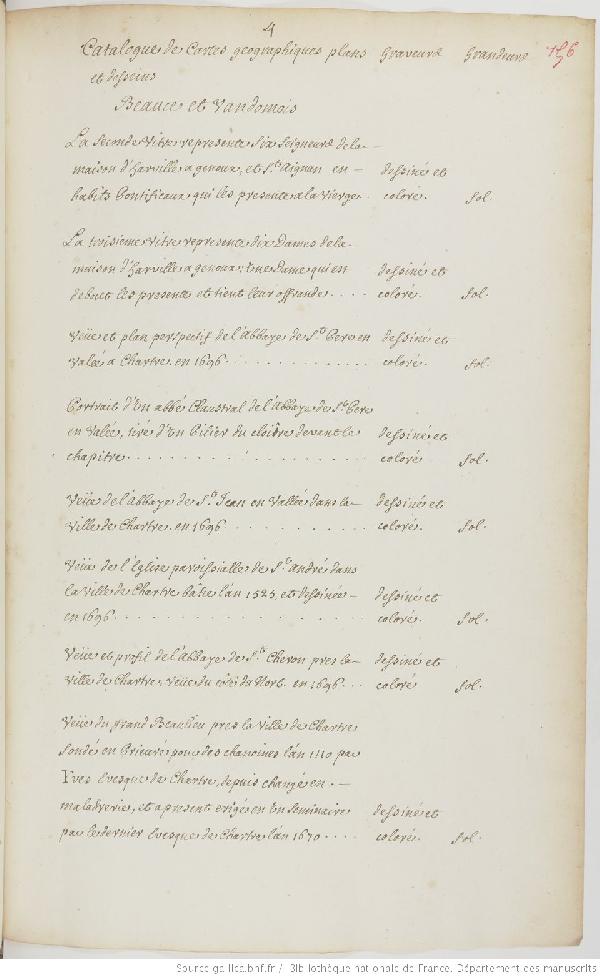 4
Catalogue de Cartes geographiques plans Graveure Grandeure 156
et desseins
Beauce et Vandomois
La Seconde Vitre represente Six Seigneurs de la
maison d'harville a genoux, et St. Aignan en dessiné et
habits Pontificaux qui les presente a la Vierge coloré. fol.
La troisieme Vitre represente dix Dames de la
maison d'harville a genoux, Une Dame qui est dessiné et
debout les presente et tient leur offrande . . . . coloré. fol.
Veüe et plan perspectif de l'Abbaye de St. Pere en dessiné et
Valée a Chartre en 1696 . . . . . . . . . . . coloré. fol.
Portrait d'Un abbé Claustral de l'Abbaye de St. Pere
en Valée, tiré d'Un Pilier du cloître devant le dessiné et
chapitre . . . . . . . . . . . . . . . . coloré fol.
Veüe de l'Abbaye de St. Jean en Vallée dans la dessiné et
Ville de Chartre en 1696 . . . . . . . . . . coloré. fol.
Veüe de l'Eglise paroissialle de St. André dans
la Ville de Chartre bâtie l'an 1525, et dessinée dessiné et
en 1696 . . . . . . . . . . . . . . . . coloré. fol.
Veüe et profil de l'Abbaye de St. Cheron pres la dessiné et
Ville de Chartre, Veüe du côté du Nort en 1696 . . coloré fol.
Veüe du grand Beaulieu pres la Ville de Chartre
fondé en Prieuré pour des chanoines l'an 1110 par
Yves Evesque de Chartre, depuis changé en
maladrerie, et a present erigé en Un Seminaire dessiné et
par le dernier Evesque de Chartre l'an 1670 . . . . coloré. fol.
Source gallica.bnf.fr / Bibliothèque nationale de France. Département des manuscrits